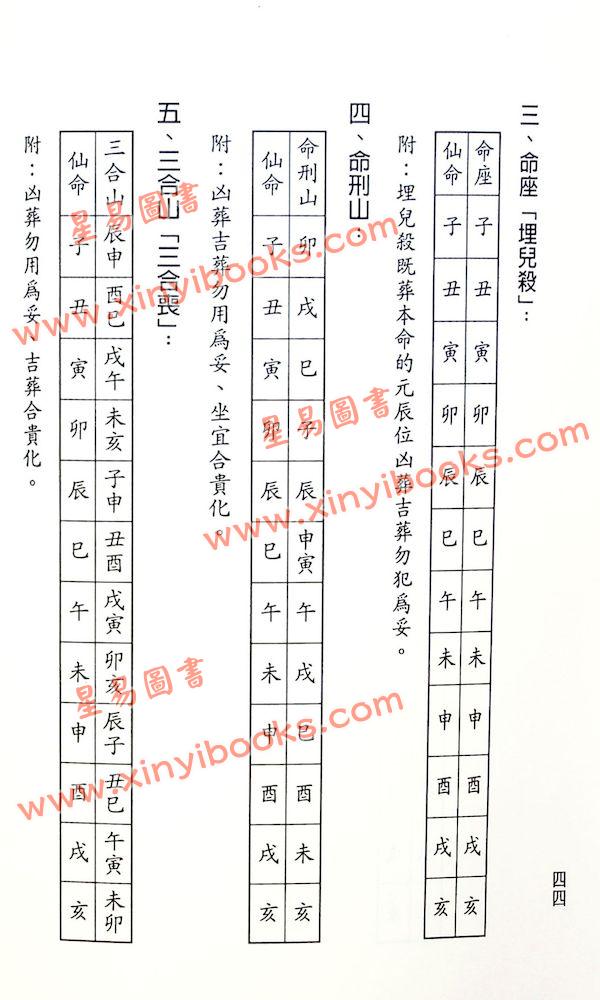 三、命座「埋兒殺」：
命座 子 丑 寅 卯 辰 巳 午 未 申 酉 戌 亥
仙命 子 丑 寅 卯 辰 巳 午 未 申 酉 戌 亥
附：埋兒殺既葬本命的元辰位凶葬吉葬勿犯爲妥。
四、命刑山：
命刑山 卯 戌 巳 子 辰 申寅 午 戌 巳 酉 未 亥
仙命 子 丑 寅 卯 辰 巳 午 未 申 酉 戌 亥
附：凶葬吉葬勿用爲妥、坐宜合貴化。
五、三合山「三合喪」：
三合山 辰申 酉巳 戌午 未亥 子申 丑酉 戌寅 卯亥 辰子 丑巳 午寅 未卯
仙命 子 丑 寅 卯 辰 巳 午 未 申 酉 戌 亥
附：凶葬勿用爲妥、吉葬合貴化。
四四
星易圖書
www.xinyibooks.com
星易圖書
www.xinyibooks.com
星易圖書
www.xinyibooks.com